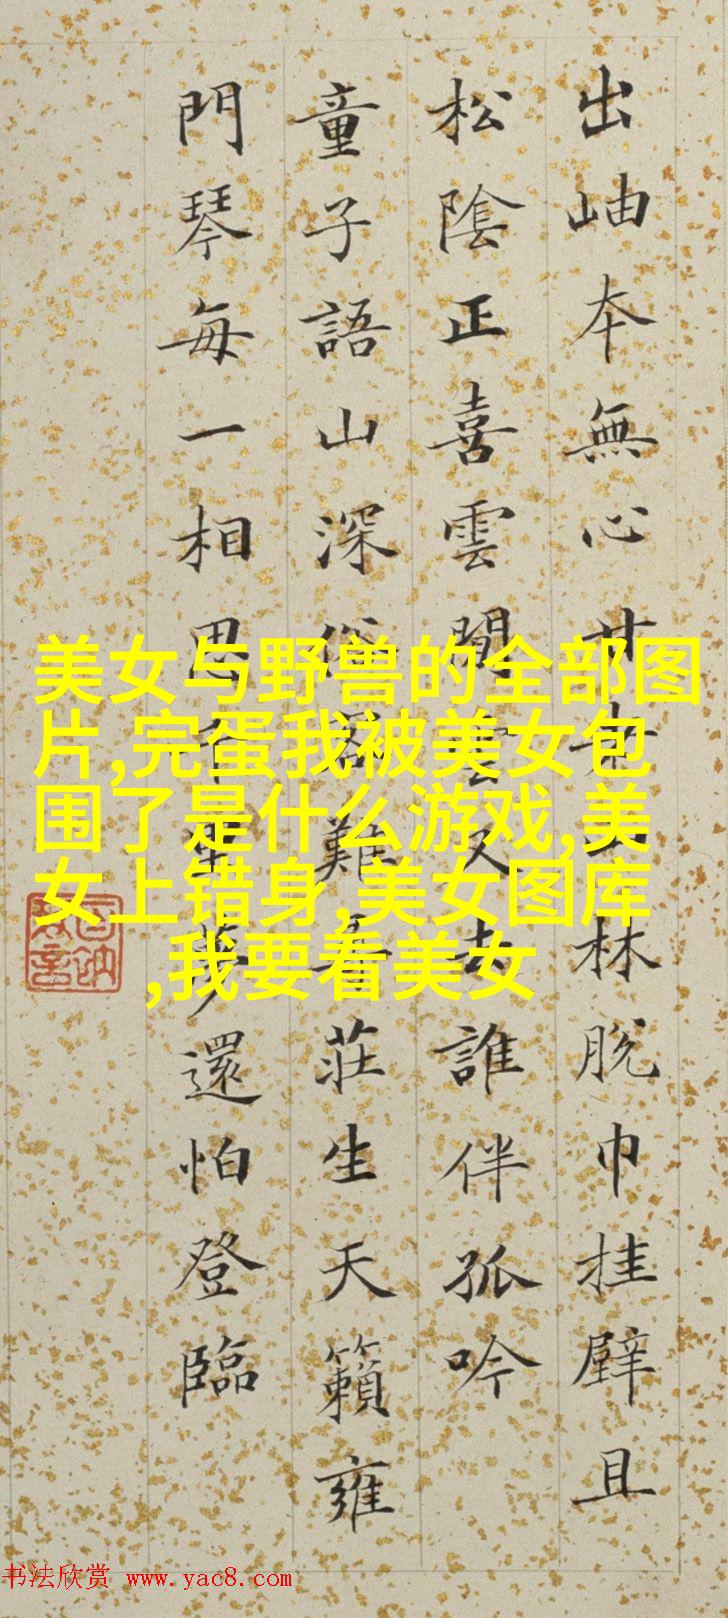 出岫本無心甘老林脫巾挂壁且
松陰正喜雲閒雲又去誰伴孤吟
童子語山深俗客難尋莊生天籟雍
門琴每一相思夢還怕登臨
美女与野兽的全部图
片,完蛋我被美女包
围了是什么游戏,美
女上错身,美女图库
,我要看美女
书法欣赏 www.yac8.com